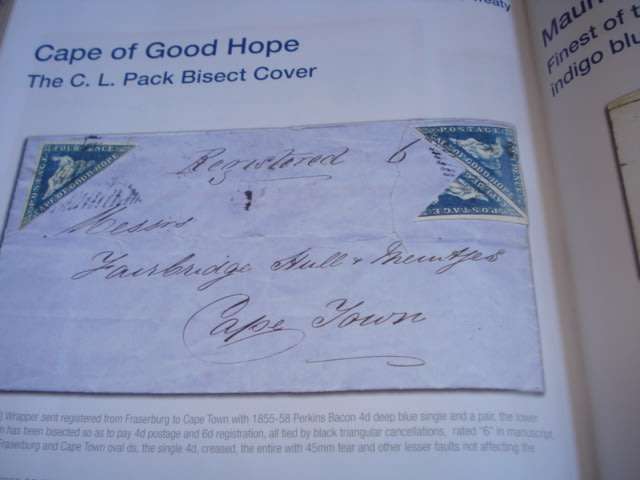 reaty
Cape of Good Hope
The C. L. Pack Bisect Cover
Mauri
Finest of t
indigo blu
POSTAGE
FOUR PENCE
CAPE OF GOOD HOPE
Registered 6
POSTAGE
CAPE OF GOOD HOPE
POSTAGE
Messrs
Fairbridge Hull &
Cape Town
) Wrapper sent registered from Fraserburg to Cape Town with 1855-58 Perkins Bacon 4d deep blue single and a pair, the lower
n has been bisected so as to pay 4d postage and 6d registration, all tied by black triangular cancellations, rated "6" in manuscript,
Fraserburg and Cape Town oval ds, the single 4d, creased, the entire with 45mm tear and other lesser faults not affecting the